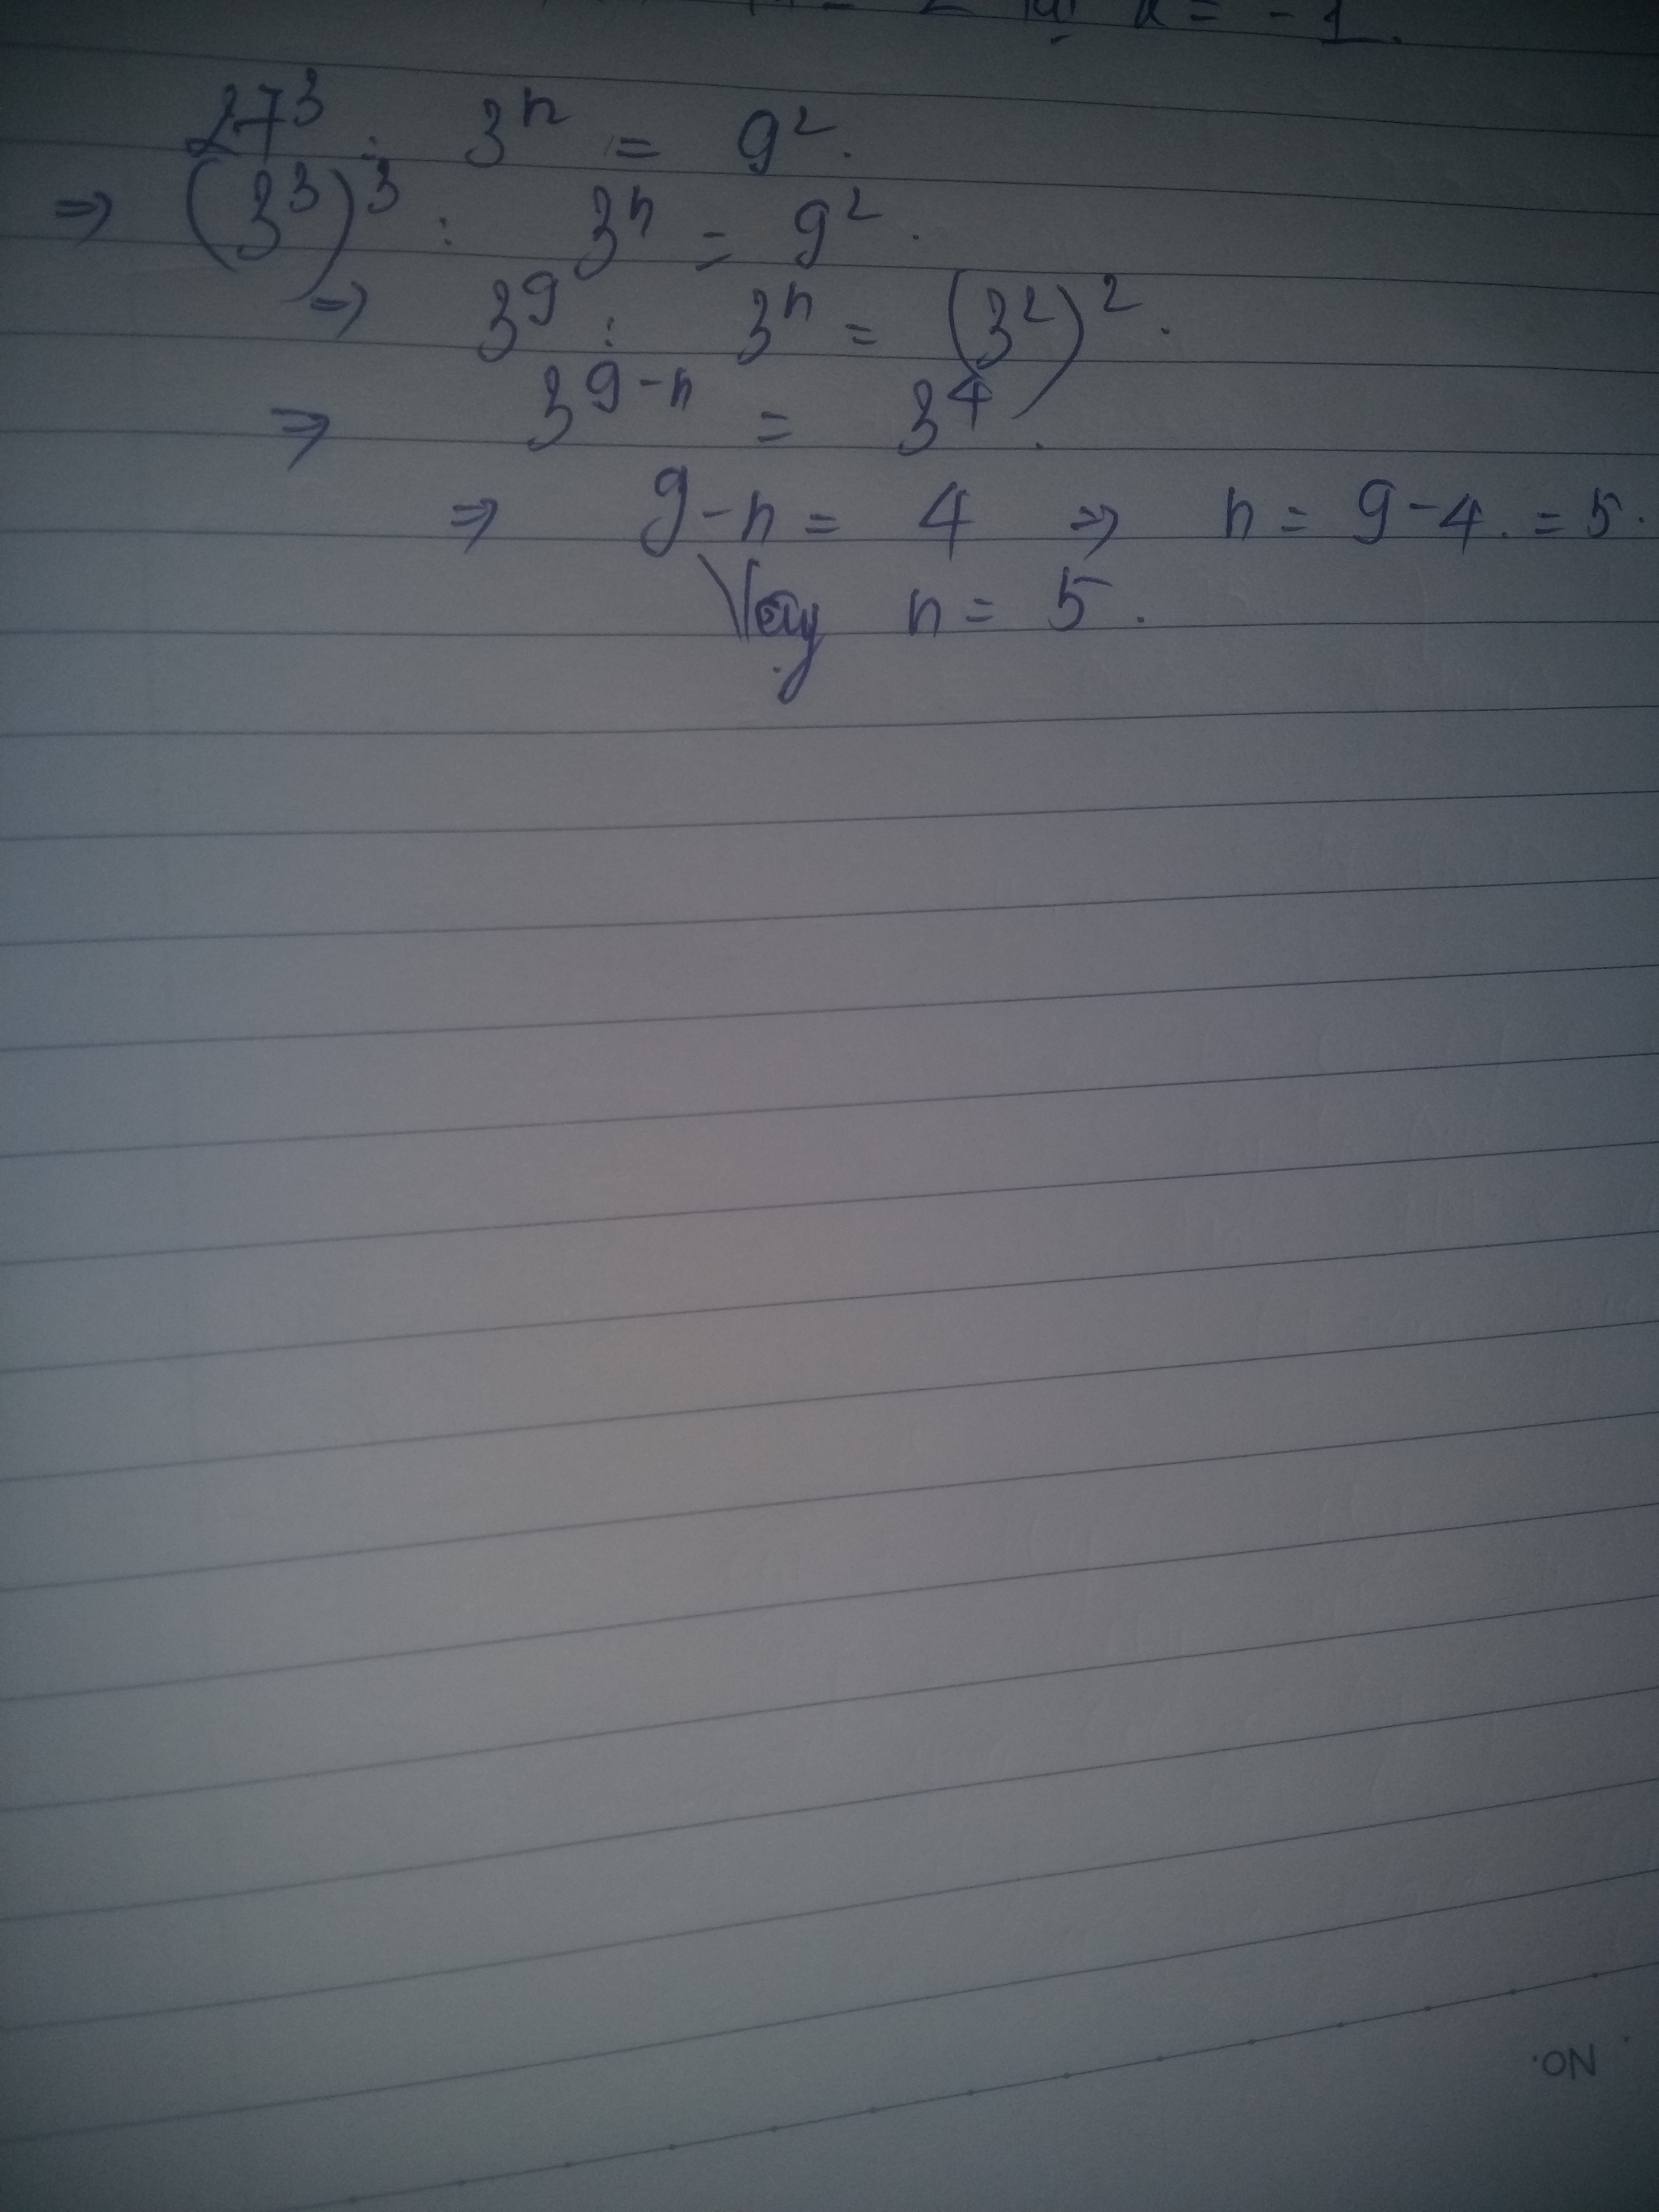 = - 1.
27³ : 3ⁿ = 9².
⇒ (3³)³ : 3ⁿ = 9².
⇒ 3⁹ : 3ⁿ = (3²)².
⇒ 3⁹⁻ⁿ = 3⁴.
⇒ 9-n = 4 ⇒ n = 9-4. = 5.
Vậy n = 5.
NO.